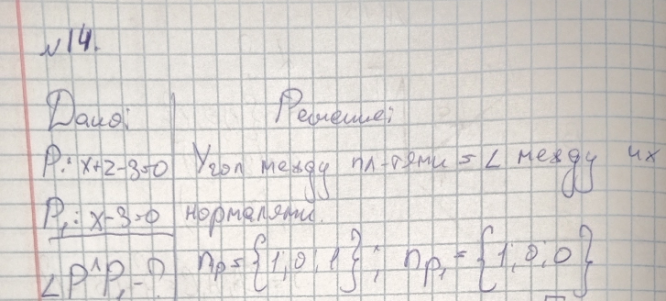 №14.
Дано: Решение:
P: x+z-3=0 Угол между пл-тями = ∠ между их
P₁: x-3=0 нормалями.
∠P^P₁-? nₚ={1;0;1}; nₚ₁={1;0;0}